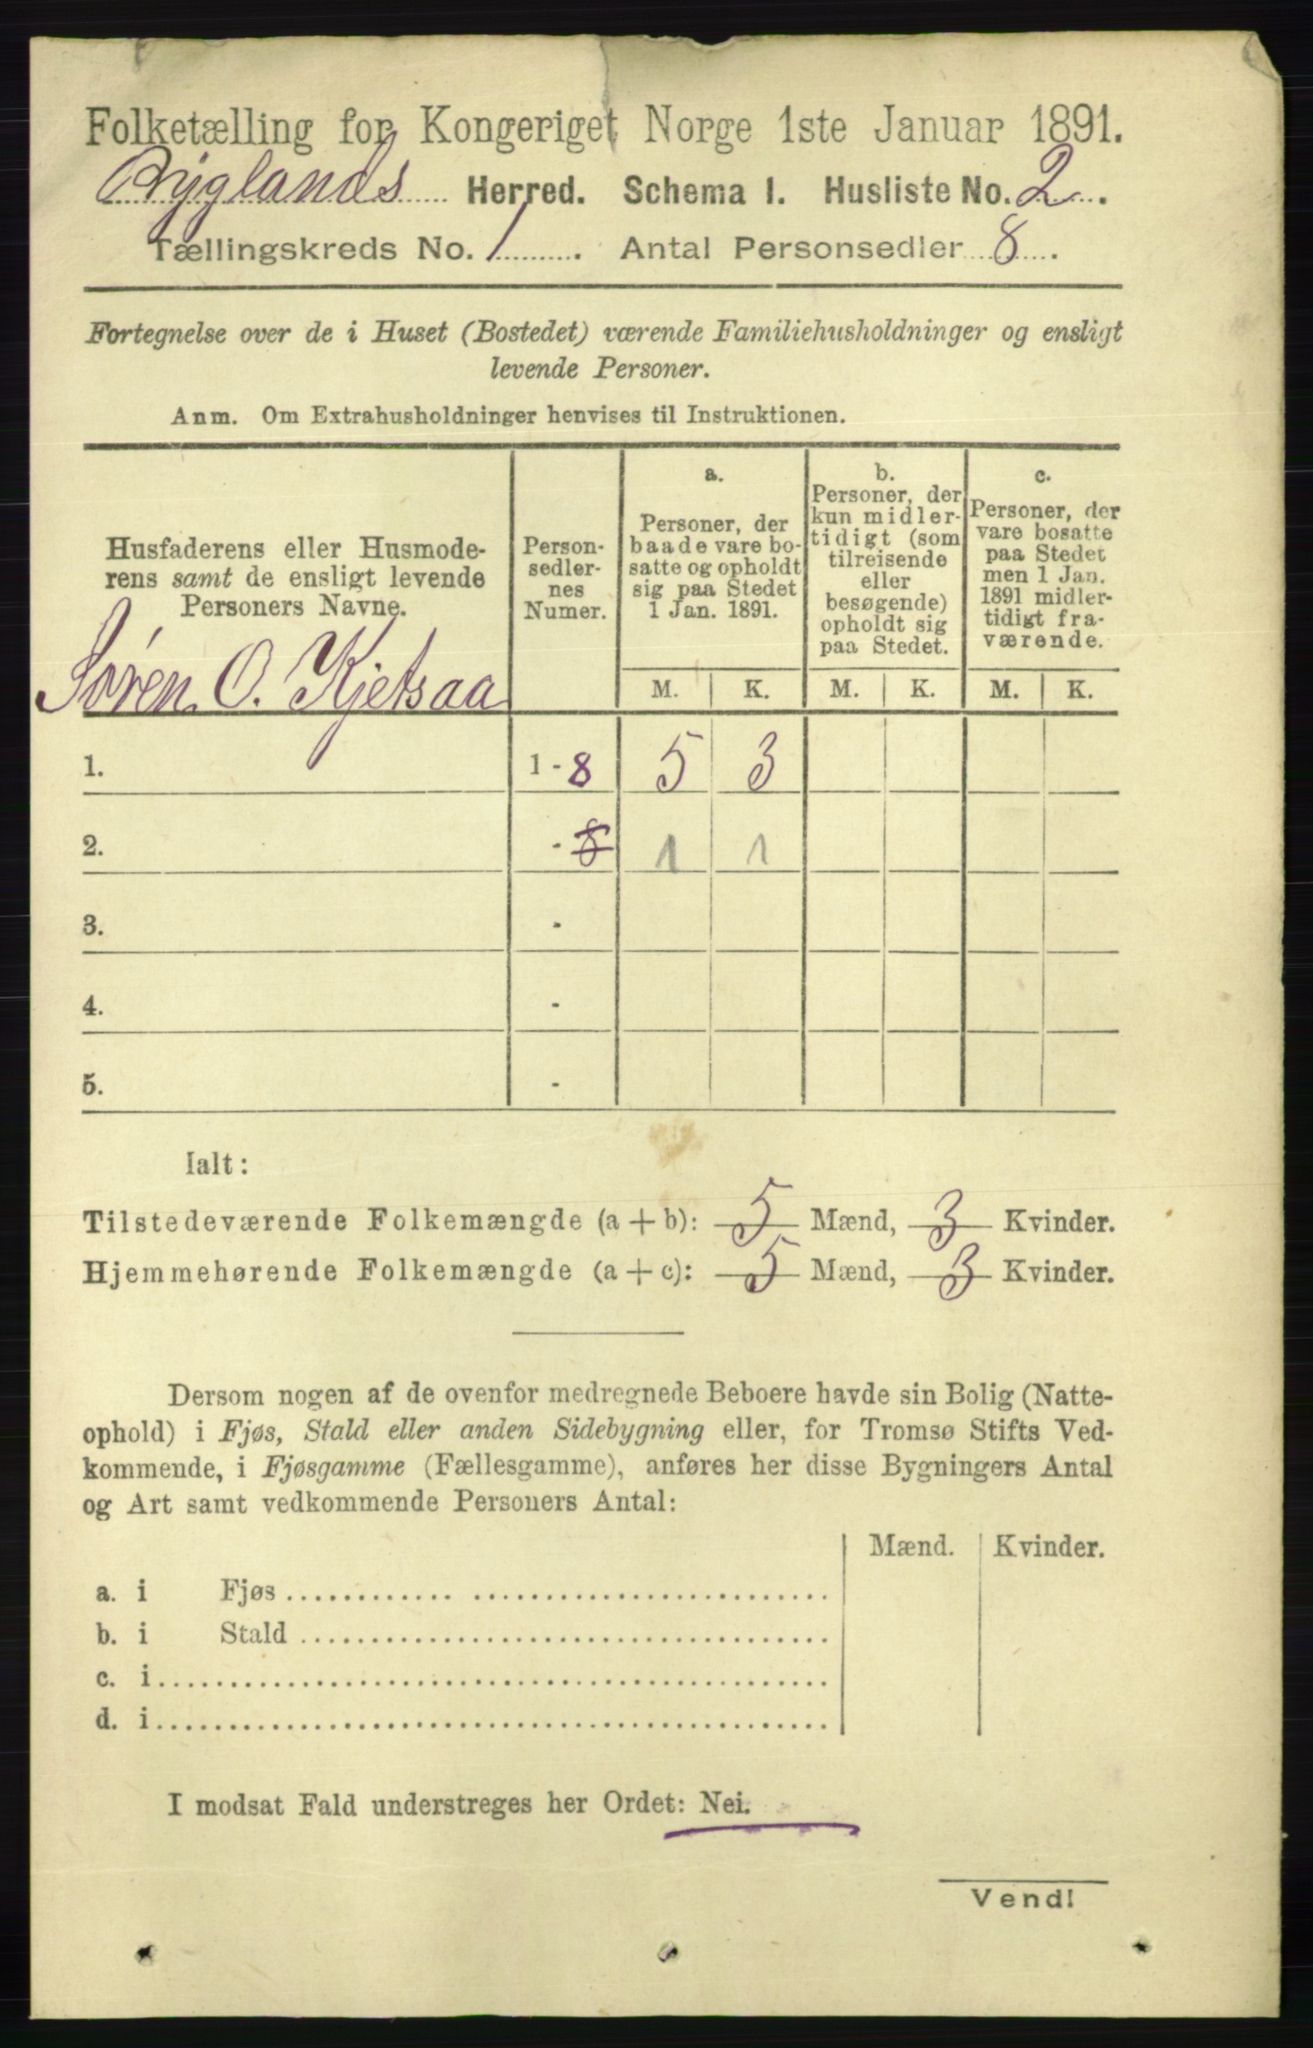 Folketælling for Kongeriget Norge 1ste Januar 1891.
Byglands Herred. Schema 1. Husliste No. 2
Tællingskreds No. 1. Antal Personsedler 8.
Fortegnelse over de i Huset (Bostedet) værende Familiehusholdninger og ensligt
levende Personer.
Anm. Om Extrahusholdninger henvises til Instruktionen.
Husfaderens eller Husmode-
rens samt de ensligt levende
Personers Navne.
Person-
sedler-
nes
Numer.
a.
Personer, der
baade vare bo-
satte og opholdt
sig paa Stedet
1 Jan. 1891.
b.
Personer, der
kun midler-
tidigt (som
tilreisende
eller
besøgende)
opholdt sig
paa Stedet.
c.
Personer, der
vare bosatte
paa Stedet
men 1 Jan.
1891 midler-
tidigt fra-
værende.
M. K. M. K. M. K.
Søren O. Kjetsaa
1. 1 - 8 5 3
2. - 8 1 1
3. -
4. -
5. -
Ialt:
Tilstedeværende Folkemængde (a + b): 5 Mænd, 3 Kvinder.
Hjemmehørende Folkemængde (a + c): 5 Mænd, 3 Kvinder.
Dersom nogen af de ovenfor medregnede Beboere havde sin Bolig (Natte-
ophold) i Fjøs, Stald eller anden Sidebygning eller, for Tromsø Stifts Ved-
kommende, i Fjøsgamme (Fællesgamme), anføres her disse Bygningers Antal
og Art samt vedkommende Personers Antal:
Mænd. Kvinder.
a. i Fjøs
b. i Stald
c. i
d. i
I modsat Fald understreges her Ordet: Nei.
Vend!